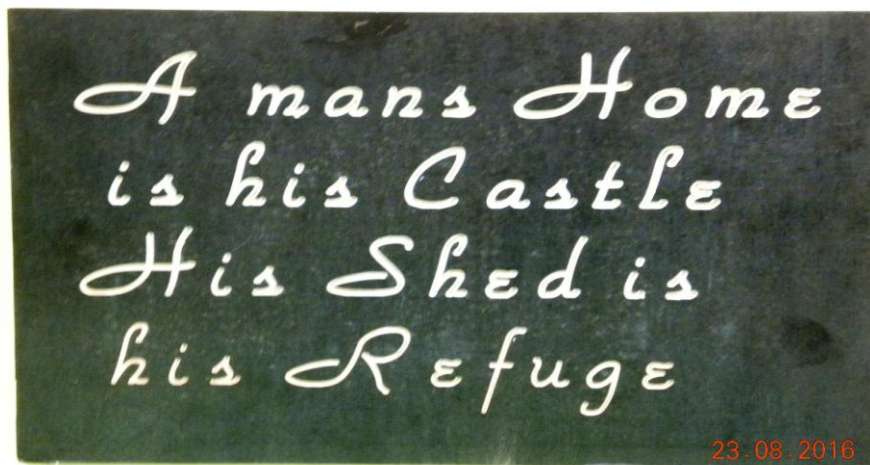 A mans Home
is his Castle
His Shed is
his Refuge
23.08.2016